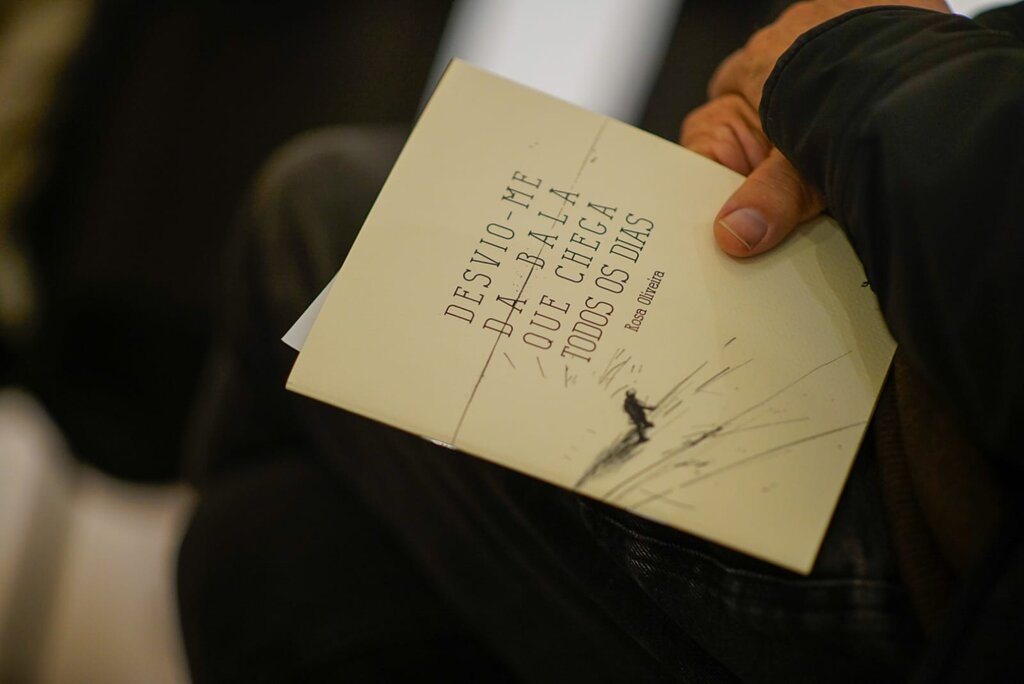 DESVIO-ME
DA BALA
QUE CHEGA
TODOS OS DIAS
Rosa Oliveira